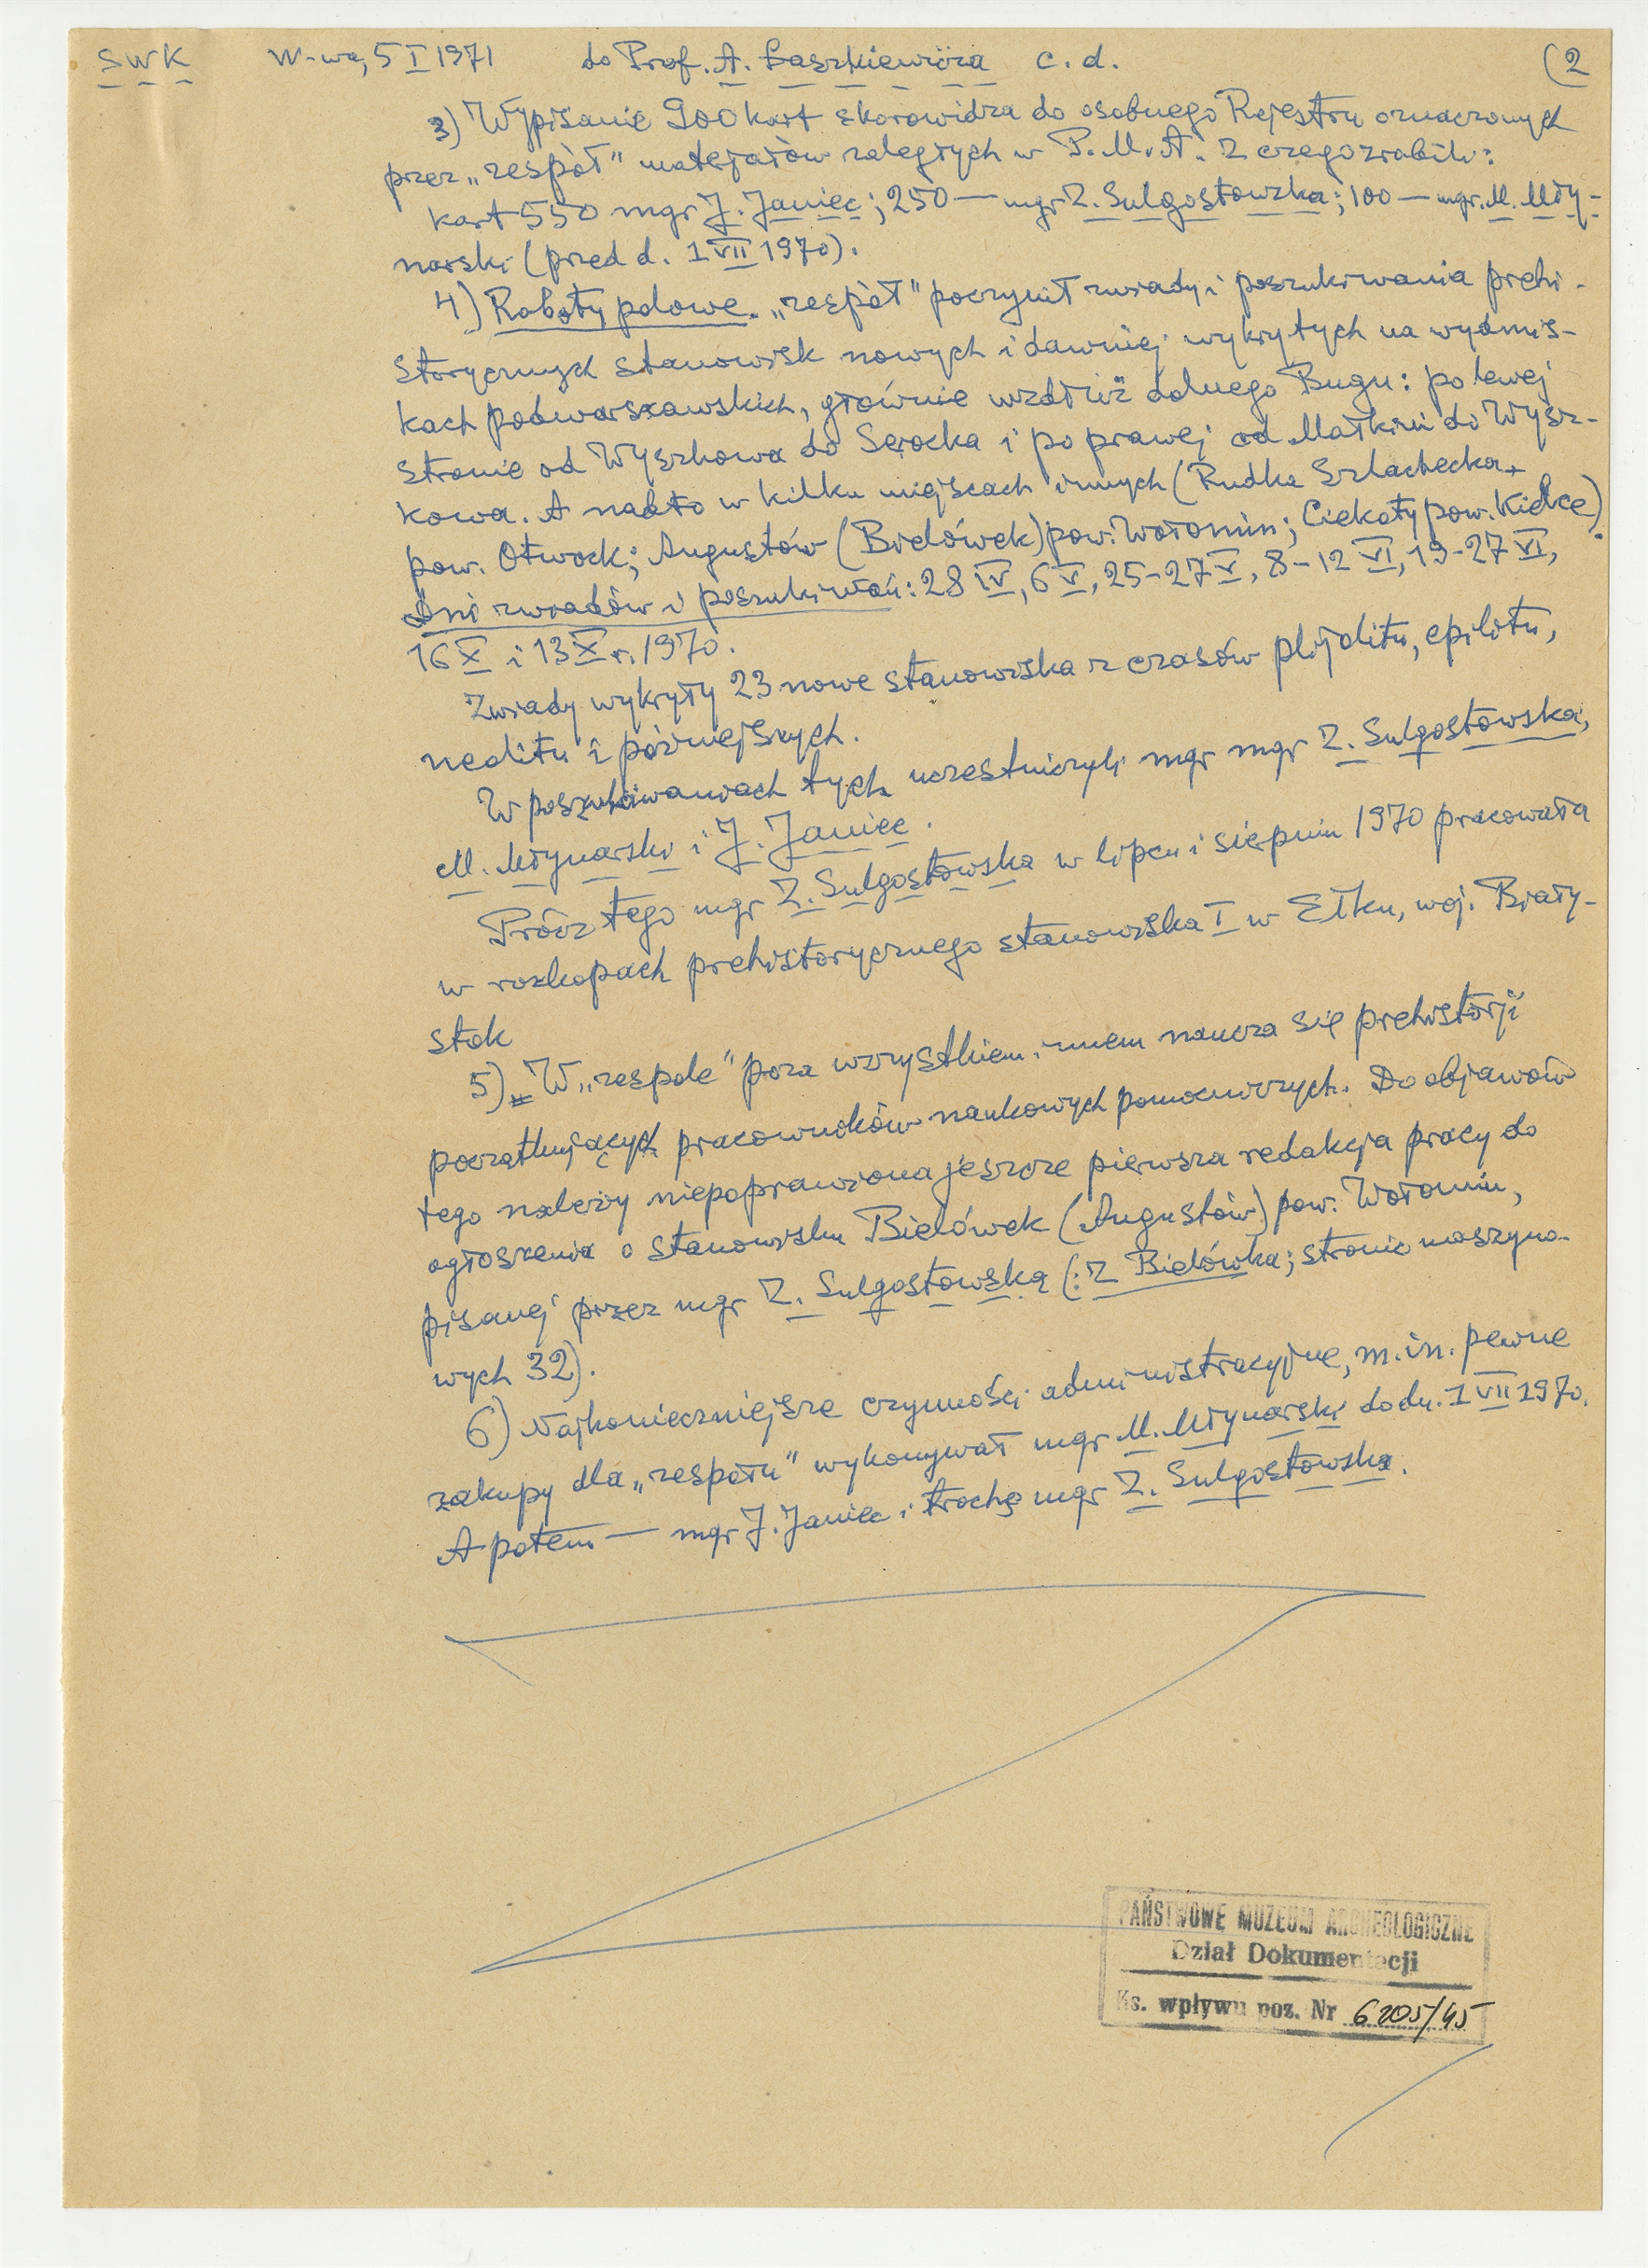 SWK W-wa, 5 I 1971 do Prof. A. Łaszkiewicza c. d. (2
3) Wypisanie 900 kart skorowidza do osobnego Rejestru oznaczonych
przez „zespół” materjałów zaległych w P. M. A. Z czego zrobili:
kart 550 mgr J. Janiec; 250 — mgr Z. Sulgostowska; 100 — mgr. M. Mły-
narski (przed d. 1 VII 1970).
4) Roboty polowe. „zespół” poczynił zwiady i poszukiwania prehi-
storycznych stanowisk nowych i dawniej wykrytych na wydmis-
kach podwarszawskich, głównie wzdłuż dolnego Bugu: po lewej
stronie od Wyszkowa do Serocka i po prawej od Małkini do Wysz-
kowa. A nadto w kilku miejscach innych (Rudka Szlachecka
pow. Otwock; Augustów (Bielówek) pow. Wołomin; Ciekoty pow. Kielce).
Dni zwiadów i poszukiwań: 28 IV, 6 V, 25-27 V, 8-12 VI, 19-27 VI,
16 X i 13 X r. 1970.
Zwiady wykryły 23 nowe stanowiska z czasów plijolitu, epilitu,
neolitu i późniejszych.
W poszukiwaniach tych uczestniczyli mgr mgr Z. Sulgostowska,
M. Młynarski i J. Janiec.
Prócz tego mgr Z. Sulgostowska w lipcu i sierpniu 1970 pracowała
w rozkopach prehistorycznego stanowiska I w Ełku, woj. Biały-
stok
5) W „zespole” poza wszystkiem innem naucza się prehistorji
początkujących pracowników naukowych pomocniczych. Do objawów
tego należy niepoprawiona jeszcze pierwsza redakcja pracy do
ogłoszenia o stanowisku Bielówek (Augustów) pow. Wołomin,
pisanej przez mgr Z. Sulgostowską (: Z Bielówka; stronic maszyno-
wych 32).
6) Najkonieczniejsze czynności administracyjne, m. in. pewne
zakupy dla „zespołu” wykonywał mgr M. Młynarski do dn. 1 VII 1970.
A potem — mgr J. Janiec i trochę mgr Z. Sulgostowska.
PAŃSTWOWE MUZEUM ARCHEOLOGICZNE
Dział Dokumentacji
Ks. wpływu poz. Nr 6205/45